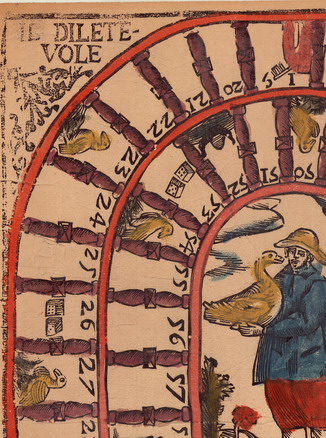 IL DILETE-
VOLE
20
21
22
23
24
25
26
27
50
51
52
53
54
55
56
57